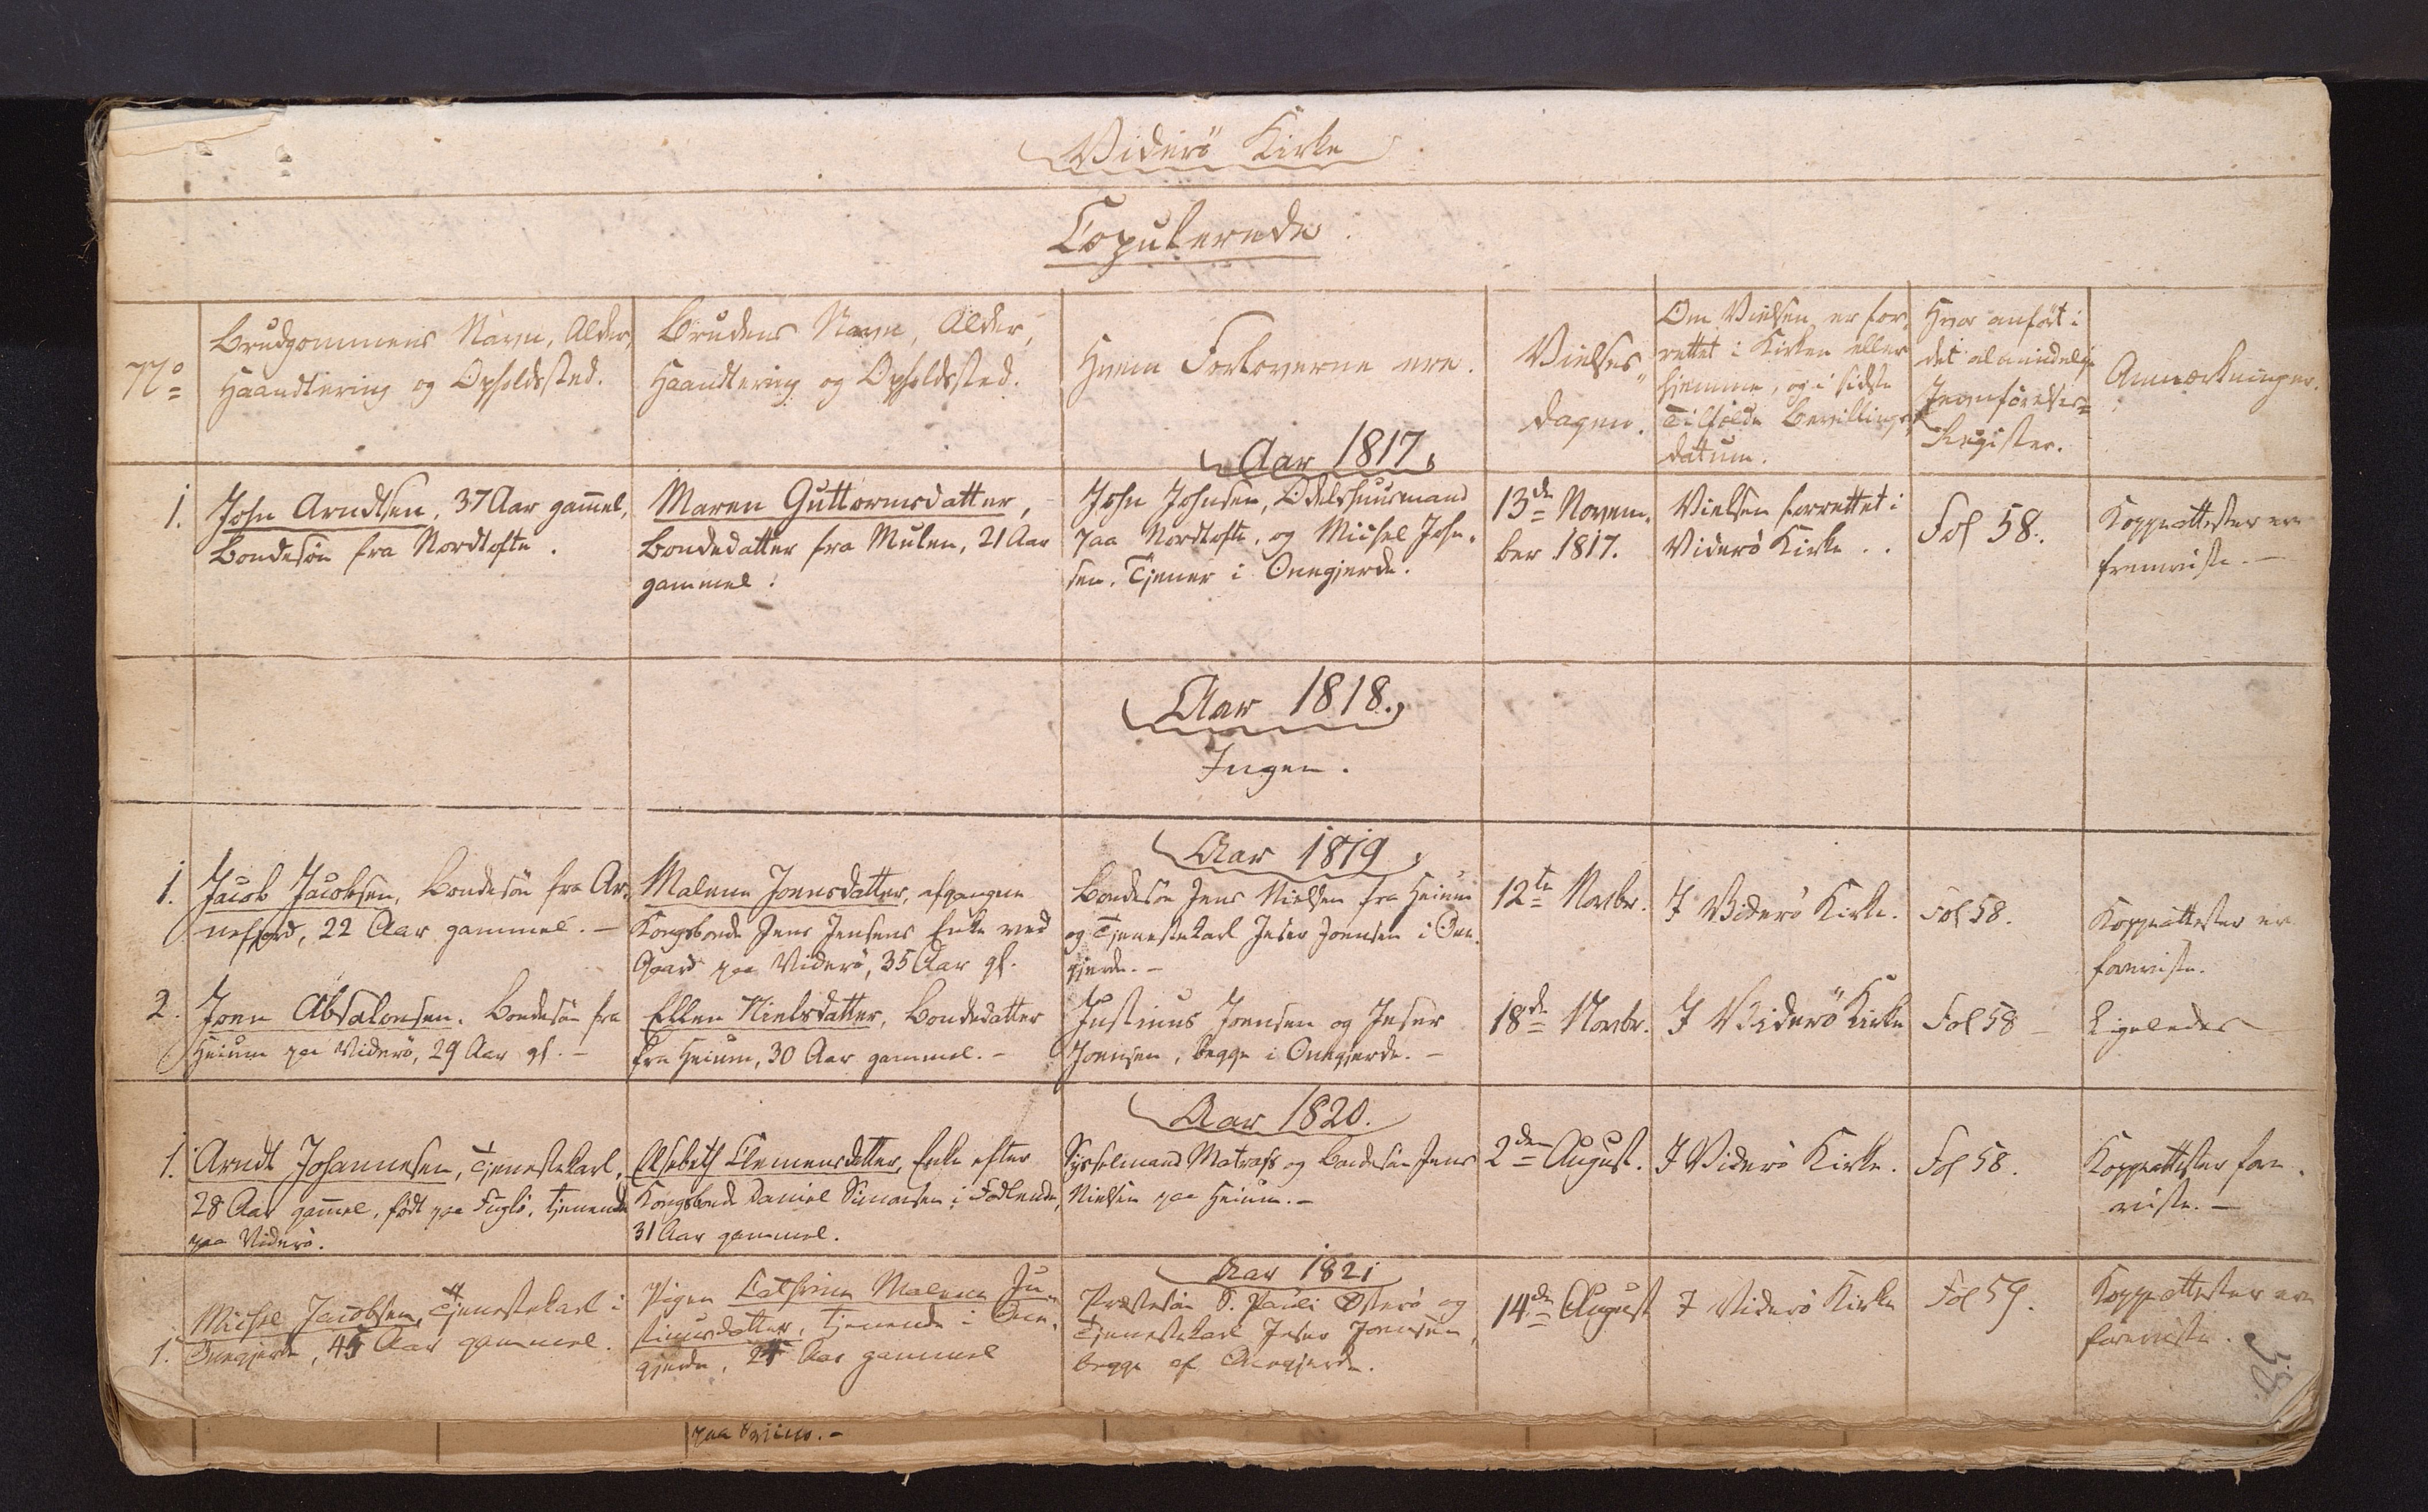 Viderö Kirke
Copulerede.
No
Brudgommens Navn, Alder,
Haandtering og Opholdssted.
Brudens Navn, Alder,
Haandtering og Opholdssted.
Hvem Forloverne ere.
Vielses
dagen.
Om Vielsen er for
rettet i Kirken eller
hjemme, og i sidste
Tilfælde Bevillings
datum.
Hvor anfört i
det almindelige
Jevnförelses=
Register.
Anmærkninger.
Aar 1817.
1.
John Arndtsen, 37 Aar gam̅el,
Bondesön fra Nordtofte.
Maren Guttormsdatter,
Bondedatter fra Mulen, 21 Aar
gammel.
John Johnsen, Odelshuusmand
paa Nordtofte, og Michel John-
sen, Tjener i Onegjerde.
13de Novem-
ber 1817.
Vielsen forrettet i
Viderö Kirke..
Fol 58.
Koppeattester ere
fremviste. —
Aar 1818.
Ingen.
Aar 1819
1.
Jacob Jacobsen, Bondesön fra Ar-
nefjord, 22 Aar gammel. —
Malene Joensdatter, afgangne
Kongsbonde Jens Jensens Enke ved
Gaard paa Viderö, 35 Aar gl.
Bondesön Jens Nielsen fra Heium
og Tjenestekarl Jeser Joensen i One-
gjerde. —
12te Novbr.
I Viderö Kirke.
Fol 58.
Koppeattester er
foreviste.
2.
Joen Absalonsen, Bondesön fra
Heium paa Viderö, 29 Aar gl. —
Ellen Nielsdatter, Bondedatter
fra Heium, 30 Aar gammel. —
Justinus Joensen og Jeser
Joensen, begge i Onegjerde. —
18de Novbr.
I Viderö Kirke
Fol 58 —
Ligeledes
Aar 1820.
1.
Arndt Johannesen, Tjenestekarl,
28 Aar gam̅el, födt paa Fuglö, tjenende
paa Viderö.
Elsebeth Clemensdatter, Enke efter
Kongsbonde Daniel Simonsen i
31 Aar gammel.
Sysselmand Matrass og Bondesön Jens
Nielsen paa Heium. —
2den August.
I Viderö Kirke.
Fol 58.
Koppeattester fore-
viste. —
Aar 1821
1.
Michel Jacobsen, Tjenestekarl i
Onegjerde, 45 Aar gammel.
Pigen Cathrine Malene Ju-
stinusdatter, tjenende i One-
gjerde, 24 Aar gammel
Præstesön S. Pauli Österö og
Tjenestekarl Jeser Joensen,
begge af Onegjerde.
14de August
I Viderö Kirke
Fol 59.
Koppeattester ere
foreviste.
58.
paa